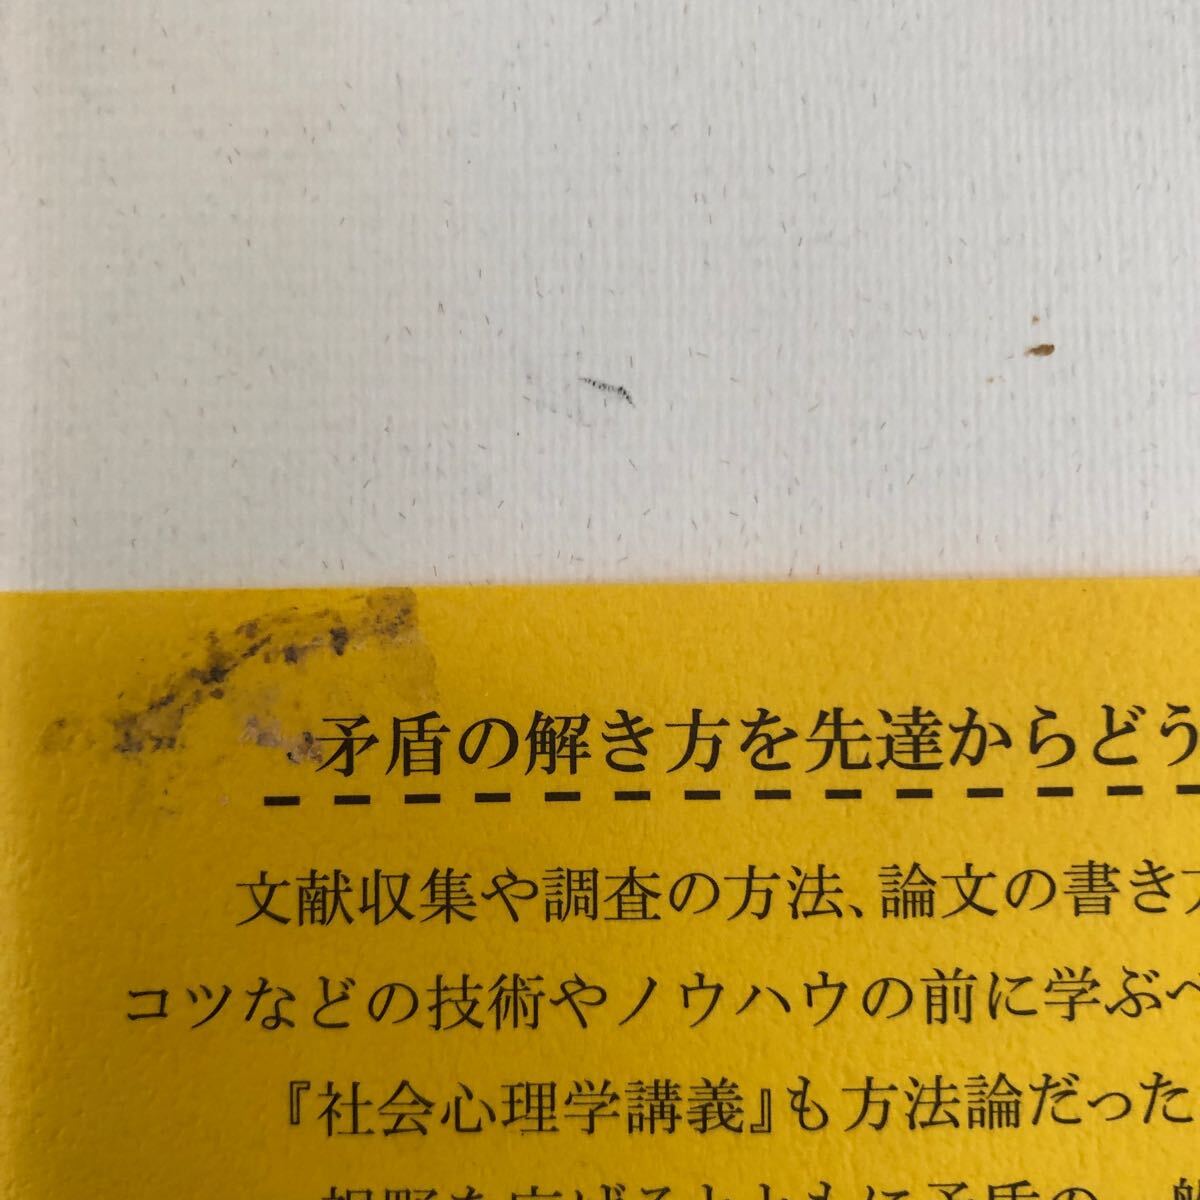 矛盾の解き方を先達からどう
文献収集や調査の方法、論文の書き方
コツなどの技術やノウハウの前に学ぶべ
『社会心理学講義』も方法論だった
視野を広げるとともに矛盾の一般